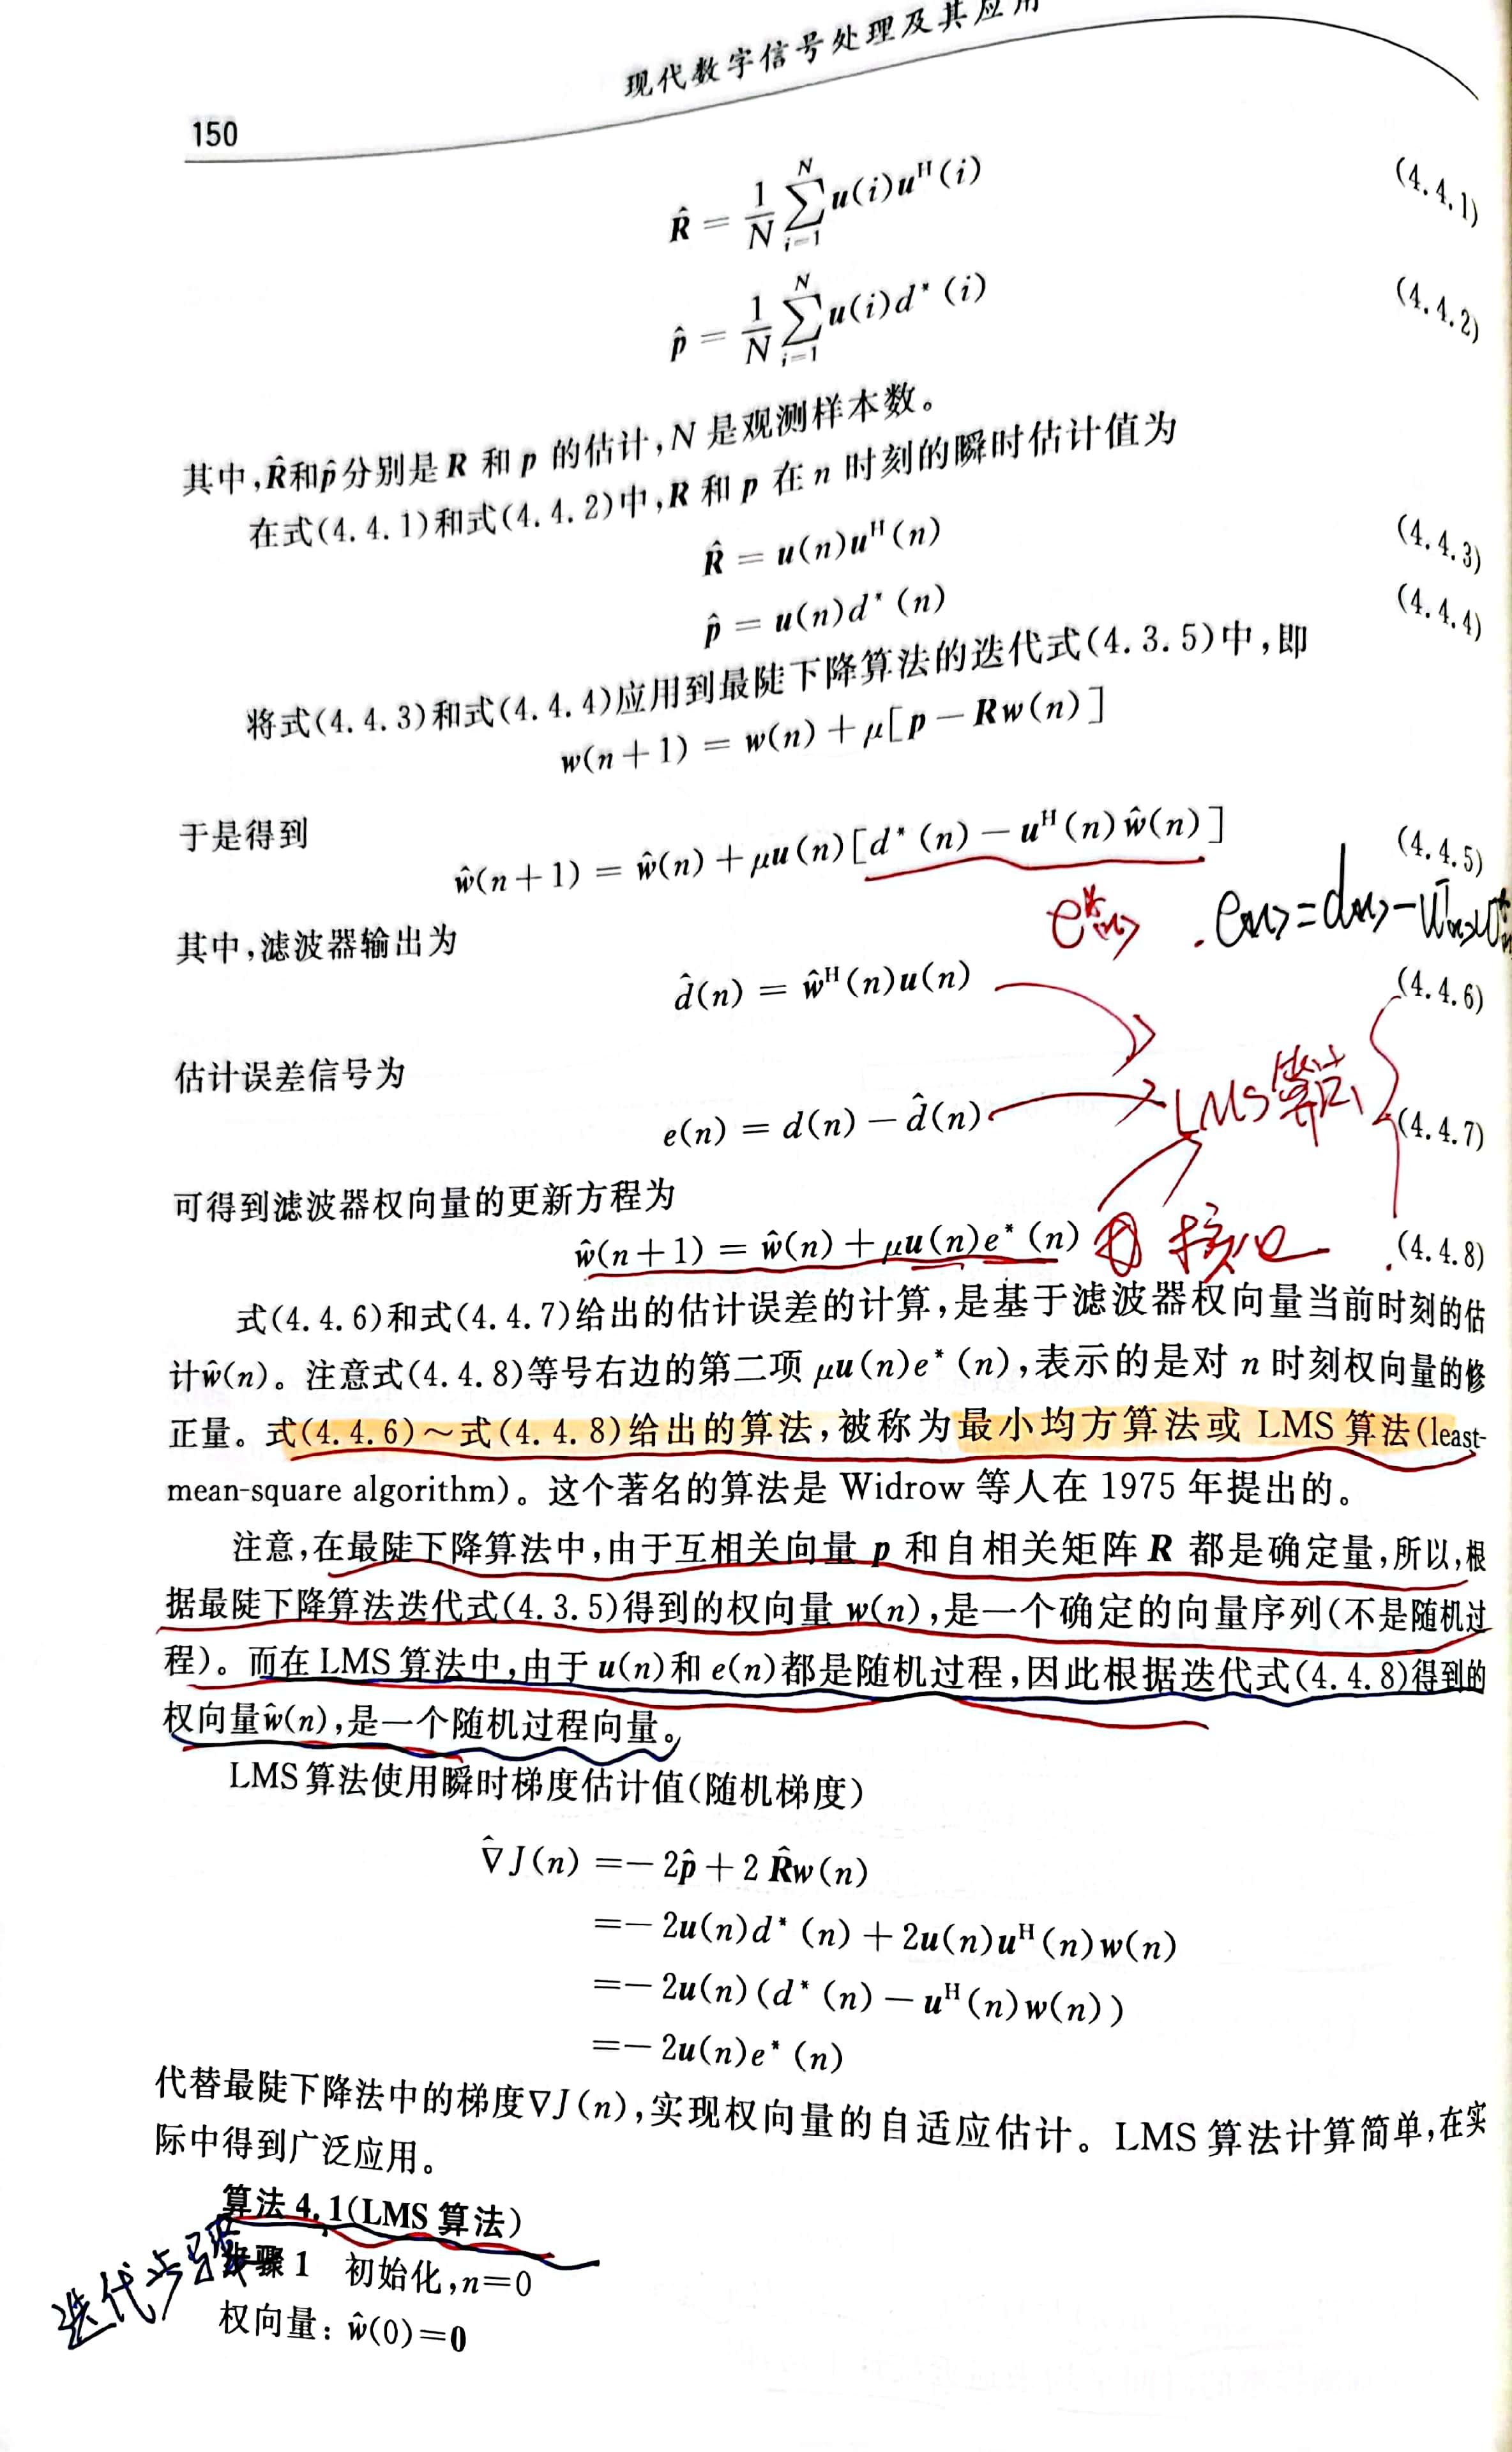 现代数字信号处理及其应用
150
R̂ = 1/N ∑_{i=1}^{N} u(i)u^H(i) (4.4.1)
p̂ = 1/N ∑_{i=1}^{N} u(i)d*(i) (4.4.2)
其中,R̂和p̂分别是 R 和 p 的估计,N 是观测样本数。
在式(4.4.1)和式(4.4.2)中,R 和 p 在 n 时刻的瞬时估计值为
R̂ = u(n)u^H(n) (4.4.3)
p̂ = u(n)d*(n) (4.4.4)
将式(4.4.3)和式(4.4.4)应用到最陡下降算法的迭代式(4.3.5)中,即
w(n+1) = w(n) + μ[p − Rw(n)]
于是得到
ŵ(n+1) = ŵ(n) + μu(n)[d*(n) − u^H(n)ŵ(n)] (4.4.5)
e*(n)
其中,滤波器输出为
d̂(n) = ŵ^H(n)u(n) (4.4.6)
估计误差信号为
LMS算法
e(n) = d(n) − d̂(n) (4.4.7)
可得到滤波器权向量的更新方程为
ŵ(n+1) = ŵ(n) + μu(n)e*(n) 核心 (4.4.8)
式(4.4.6)和式(4.4.7)给出的估计误差的计算,是基于滤波器权向量当前时刻的估
计ŵ(n)。注意式(4.4.8)等号右边的第二项 μu(n)e*(n),表示的是对 n 时刻权向量的修
正量。式(4.4.6)～式(4.4.8)给出的算法,被称为最小均方算法或 LMS 算法(least-
mean-square algorithm)。这个著名的算法是 Widrow 等人在 1975 年提出的。
注意,在最陡下降算法中,由于互相关向量 p 和自相关矩阵 R 都是确定量,所以,根
据最陡下降算法迭代式(4.3.5)得到的权向量 w(n),是一个确定的向量序列(不是随机过
程)。而在 LMS 算法中,由于 u(n)和 e(n)都是随机过程,因此根据迭代式(4.4.8)得到的
权向量ŵ(n),是一个随机过程向量。
LMS 算法使用瞬时梯度估计值(随机梯度)
∇̂J(n) =− 2p̂ + 2R̂w(n)
=− 2u(n)d*(n) + 2u(n)u^H(n)w(n)
=− 2u(n)(d*(n) − u^H(n)w(n))
=− 2u(n)e*(n)
代替最陡下降法中的梯度∇J(n),实现权向量的自适应估计。LMS 算法计算简单,在实
际中得到广泛应用。
算法 4.1(LMS 算法)
迭代步骤
步骤 1 初始化,n=0
权向量: ŵ(0)=0